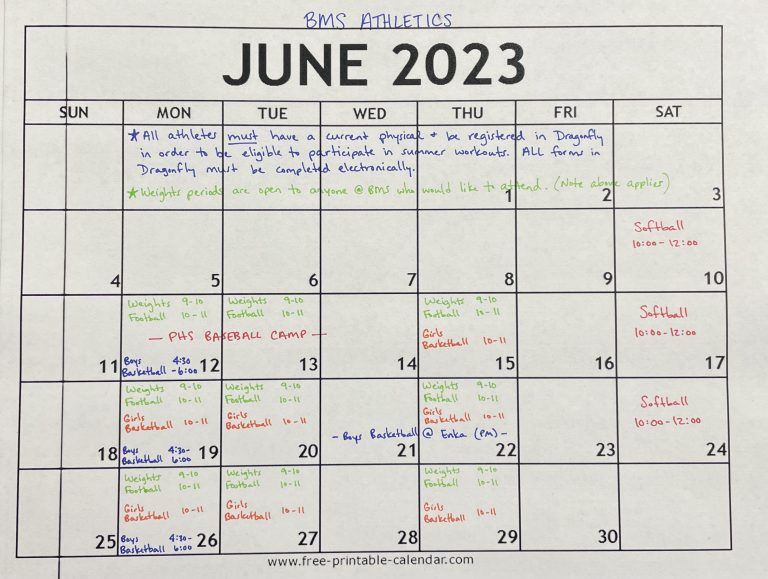 BMS ATHLETICS
JUNE 2023
SUN MON TUE WED THU FRI SAT
★ All athletes must have a current physical + be registered in Dragonfly
in order to be eligible to participate in summer workouts. ALL forms in
Dragonfly must be completed electronically.
★ Weights periods are open to anyone @ BMS who would like to attend. (Note above applies)
1 2 3
Softball
10:00-12:00
4 5 6 7 8 9 10
Weights 9-10 Weights 9-10 Weights 9-10 Softball
Football 10-11 Football 10-11 Football 10-11 10:00-12:00
— PHS BASEBALL CAMP —
Girls
Basketball 10-11
Boys 4:30
Basketball -6:00
11 12 13 14 15 16 17
Weights 9-10 Weights 9-10 Weights 9-10 Softball
Football 10-11 Football 10-11 Football 10-11 10:00-12:00
Girls Girls Girls
Basketball 10-11 Basketball 10-11 Basketball 10-11
- Boys Basketball @ Enka (PM) -
Boys 4:30-
Basketball 6:00
18 19 20 21 22 23 24
Weights 9-10 Weights 9-10 Weights 9-10
Football 10-11 Football 10-11 Football 10-11
Girls Girls Girls
Basketball 10-11 Basketball 10-11 Basketball 10-11
Boys 4:30-
Basketball 6:00
25 26 27 28 29 30
www.free-printable-calendar.com